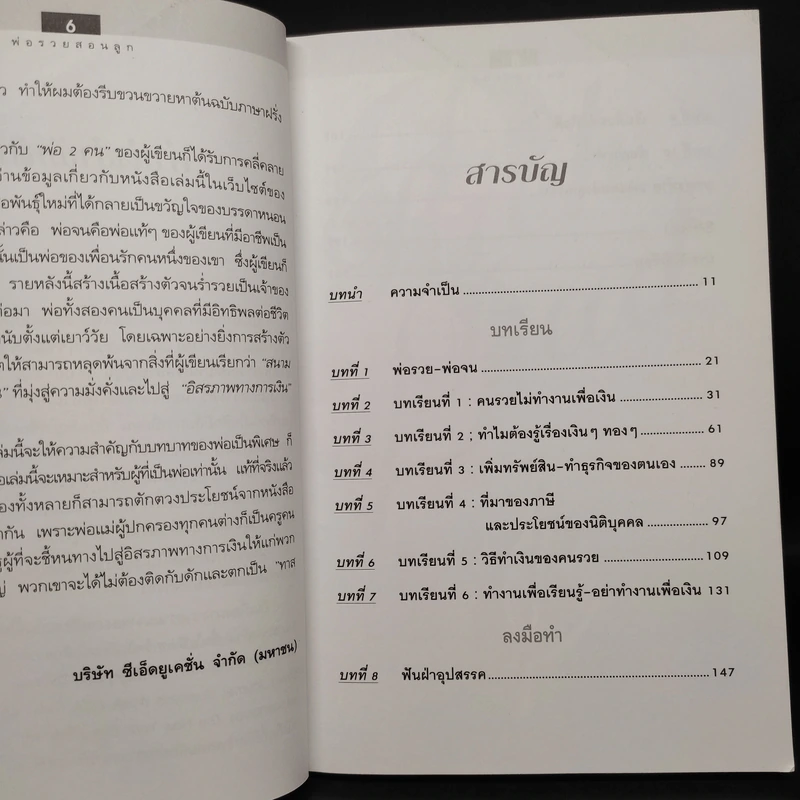 6
พ่อรวยสอนลูก
ว ทำให้ผมต้องรีบขวนขวายหาต้นฉบับภาษาฝรั่ง
วกับ "พ่อ 2 คน" ของผู้เขียนก็ได้รับการคลี่คลาย
านข้อมูลเกี่ยวกับหนังสือเล่มนี้ในเว็บไซต์ของ
อพันธุ์ใหม่ที่ได้กลายเป็นขวัญใจของบรรดาหนอน
ล่าวคือ พ่อจนคือพ่อแท้ๆ ของผู้เขียนที่มีอาชีพเป็น
นั้นเป็นพ่อของเพื่อนรักคนหนึ่งของเขา ซึ่งผู้เขียนก็
รายหลังนี้สร้างเนื้อสร้างตัวจนร่ำรวยเป็นเจ้าของ
ต่อมา พ่อทั้งสองคนเป็นบุคคลที่มีอิทธิพลต่อชีวิต
นับตั้งแต่เยาว์วัย โดยเฉพาะอย่างยิ่งการสร้างตัว
ตให้สามารถหลุดพ้นจากสิ่งที่ผู้เขียนเรียกว่า "สนาม
น" ที่มุ่งสู่ความมั่งคั่งและไปสู่ "อิสรภาพทางการเงิน"
ล่มนี้จะให้ความสำคัญกับบทบาทของพ่อเป็นพิเศษ ก็
อเล่มนี้จะเหมาะสำหรับผู้ที่เป็นพ่อเท่านั้น แท้ที่จริงแล้ว
องทั้งหลายก็สามารถตักตวงประโยชน์จากหนังสือ
กัน เพราะพ่อแม่ผู้ปกครองทุกคนต่างก็เป็นครูคน
รูผู้ที่จะชี้หนทางไปสู่อิสรภาพทางการเงินให้แก่พวก
ญ่ พวกเขาจะได้ไม่ต้องติดกับดักและตกเป็น "ทาส
บริษัท ซีเอ็ดยูเคชั่น จำกัด (มหาชน)
สารบัญ
บทนำ ความจำเป็น 11
บทเรียน
บทที่ 1 พ่อรวย-พ่อจน 21
บทที่ 2 บทเรียนที่ 1 : คนรวยไม่ทำงานเพื่อเงิน 31
บทที่ 3 บทเรียนที่ 2 ; ทำไมต้องรู้เรื่องเงินๆ ทองๆ 61
บทที่ 4 บทเรียนที่ 3 : เพิ่มทรัพย์สิน-ทำธุรกิจของตนเอง 89
บทที่ 5 บทเรียนที่ 4 : ที่มาของภาษี
และประโยชน์ของนิติบุคคล 97
บทที่ 6 บทเรียนที่ 5 : วิธีทำเงินของคนรวย 109
บทที่ 7 บทเรียนที่ 6 : ทำงานเพื่อเรียนรู้-อย่าทำงานเพื่อเงิน 131
ลงมือทำ
บทที่ 8 ฟันฝ่าอุปสรรค 147